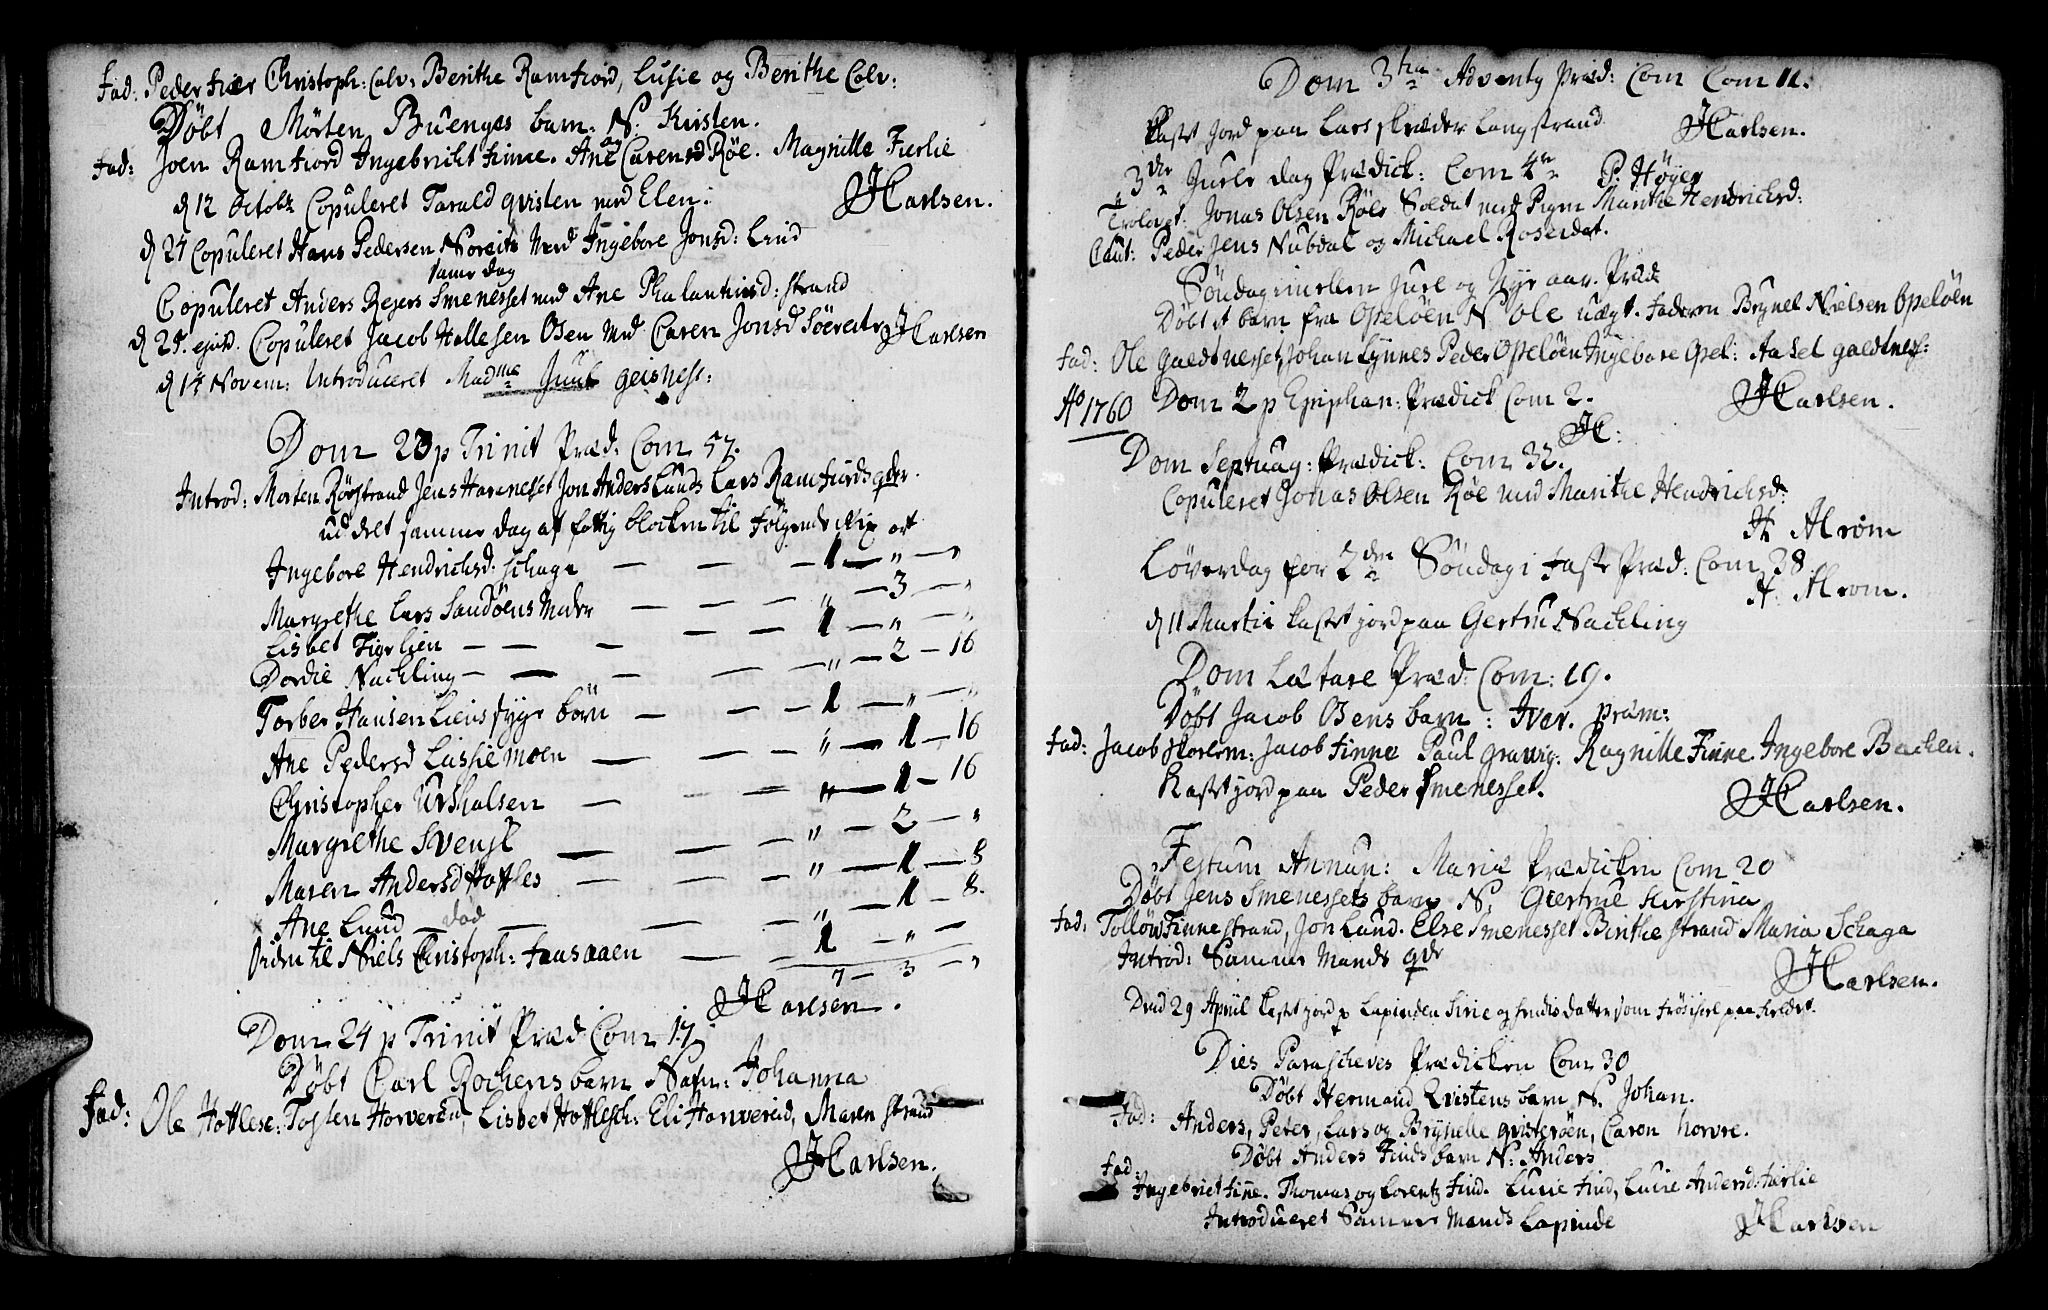 Fad: Peder Fiær Christoph: Calv: Berithe Ramfiord, Lusie og Berithe Calv:
Døbt Mörten Buenges barn. N. Kirsten.
Fad: Joen Ramfiord Ingebricht Finne. Ane og Carensd Röe. Magnille Fierlie
d 12 Octobr Copuleret Tarald qvisten med Elen:
JHCarlsen.
d 24 Copuleret Hans Pedersen Med Ingebore Jonsd: Lund
samme dag
Copuleret Anders Rejers Smenesset med Ane strand
d 29. ejusd. Copuleret Jacob Hallesen Osen Med Caren Jonsd JHCarlsen
d 14 Novem: Introduceret Madme Juul geisnes:
Dom 23 p Trinit Præd: Com 57.
Introd: Morten Rörstrand Jens Havnesset Jon Anders Lunds Lars Ramfiords qdr.
ud deelt samme dag af fattig blocken til Følgende Rix ort
Ingebore Hendrichsd. Schage — — — 1 — " — "
Margrethe Lars Sandöens Moder — — — " — 3 — "
Lisbet Figelien — — — 1 — " — "
Dordie Nackling — — — " — 2 — 16
Torber Hansen Liens syge börn — — — 1 — " — "
Ane Pedersd Lassiemoen — — — " — 1 — 16
Christopher Urshalsen — — — " — 1 — 16
Margrethe Svensk — — — " — 2 — "
Maren Andersd Hottles — — — " — 1 — 8
Ane Lund — död — — — " — 1 — 8.
til Niels Christoph: Faasaaen — — 1 — " —
7 — 3 — "
JHCarlsen.
Dom 24 p Trinit Præd Com 17.
Döbt Carl Rochens barn Nafn: Johanna
Fad: Ole Hottlese: Tosten Horverëid, Lisbet Hottlesch: Eli Horvereid, Maren Strand
JHCarlsen.
Dom 3tia Adventg Præd: Com Com 11.
Kastet Jord paa Lars skræder Langstrand
JHCarlsen.
3die Juele dag Prædick: Com 4
P. Höyer
Trolovet. Jonas Olsen Röe Soldat med Pigen Marithe Hendrichsd:
Caut: Peder Jens Nubdal og Michael Rosendat.
Söndag imellem Juel og Nyt aar. Præd
Döbt et barn fra Opelöen N Ole uægt. Faderen Brynel Nielsen Opelöen
Fad: Ole Galdtnesset, Johan Lynnes Peder Opelöen Ingebore Opel: Aasel galdtnes:
Ao 1760 Dom 2 p Epiphan: Prædick Com 2.
JHCarlsen.
JHC:
Dom Septuag: Prædick: Com 32.
Copuleret Jonas Olsen Röe med Marithe Hendrichsd:
H Alrom
Löverdag for 2den Söndag i Faste Præd: Com 38
H. Alrom.
d 11 Martii kastet jord paa Gertru Nackling
Dom Lætare Præd: Com: 19.
Döbt Jacob Osens barn: Iver. præm:
Fad: Jacob Jacob Finne Paul Gravig: Ragnille Finne Ingebore Bachen.
Kastet jord paa Peder Smenesset.
JHCarlsen.
Festum Annun: Mariæ Prædicken Com 20
Döbt Jens Smenessets barn N. Giertrue Kirstina
Fad: Tollöv Finnestrand, Jon Lund. Else Smenesset Birithe strand Maria Schaga
Introd: Samme Mands qdr
JHCarlsen.
Dend 29 April kastet jord p Lapinden Sirie og hendis datter som fröes ihiel paa Fieldet.
Dies Parascheves Prædicken Com 30
Döbt Hermand Qvistens barn N. Johan.
Fad: Anders, Peter, Lars og Brynelle qvisteröen, Caren horvre.
Döbt Anders Finds barn N: Anders
Fad:
Ingebriet Finne. Thomas og Lorentz Find. Lusie Find, Lusie Andersd: Fierlie
Introduceret Samme Mands Lapinde
JHCarlsen